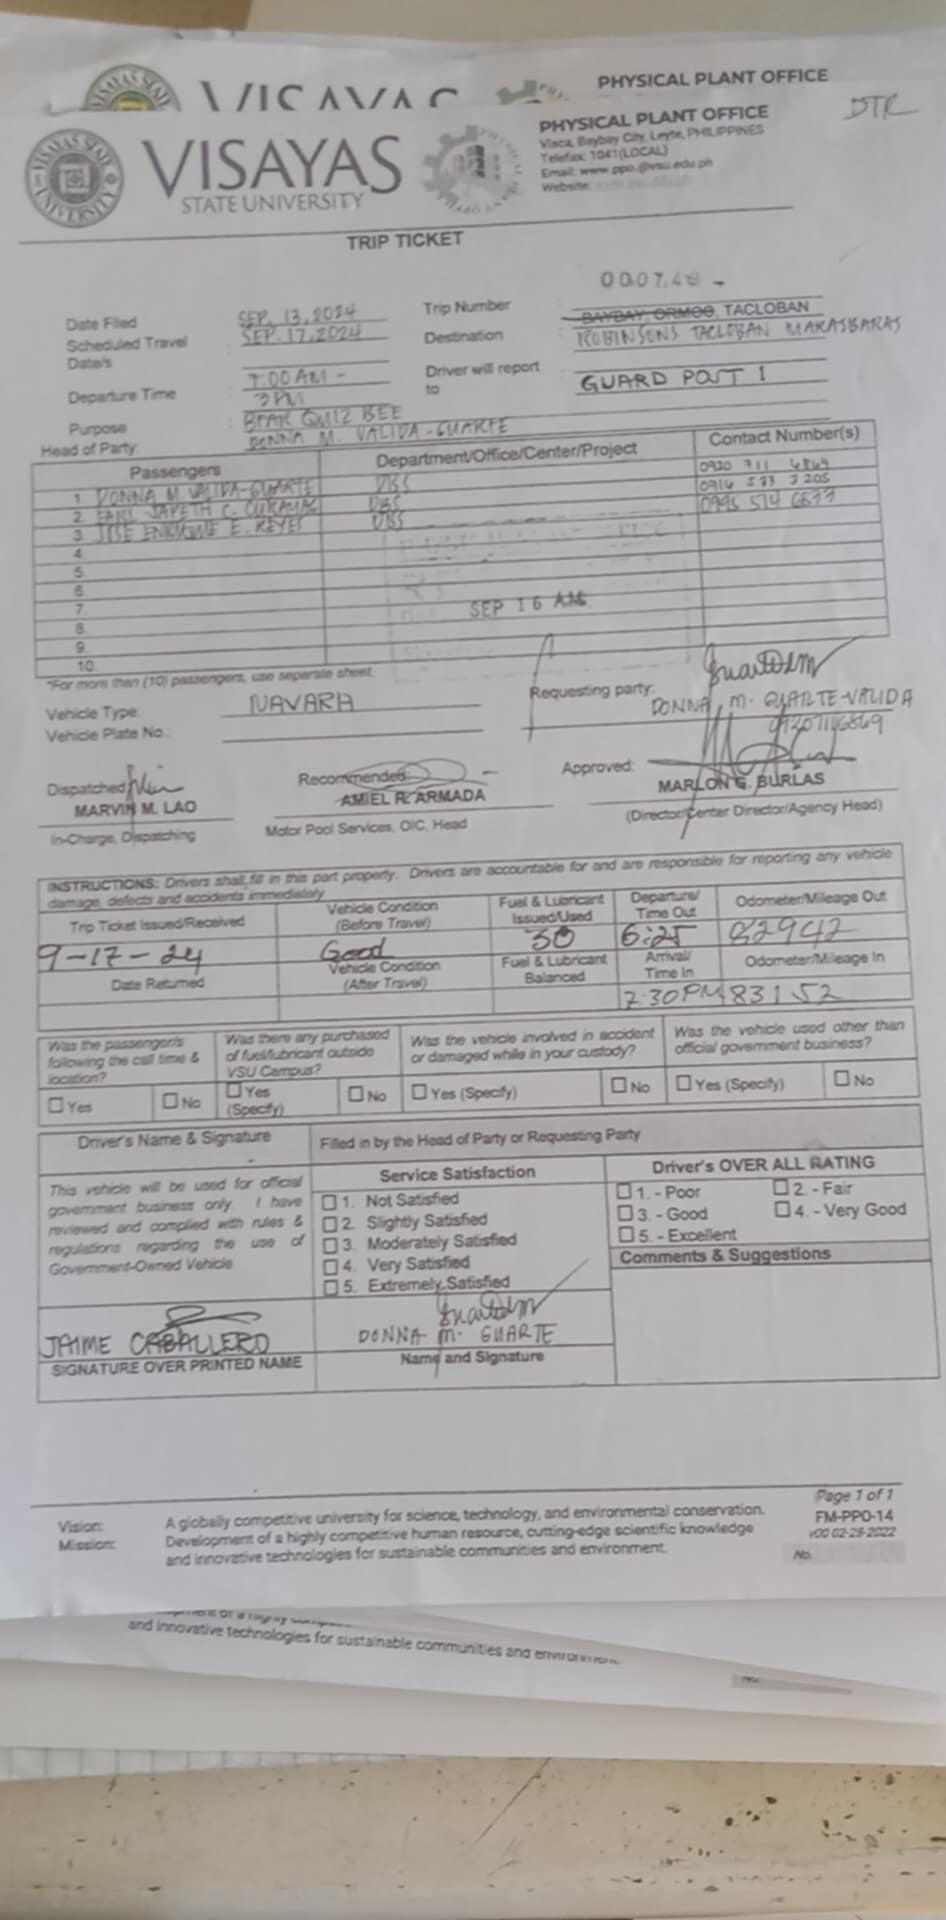 PHYSICAL PLANT OFFICE
DTR
VISAYAS
STATE UNIVERSITY
PHYSICAL PLANT OFFICE
Visca, Baybay City, Leyte, PHILIPPINES
Telefax: 1041(LOCAL)
Email: www.ppo.@vsu.edu.ph
Website:
TRIP TICKET
Date Filed : SEP. 13, 2024
Trip Number : 000748
Scheduled Travel Date/s : SEP. 17, 2024
Destination : BAYBAY, ORMOC, TACLOBAN
ROBINSONS TACLOBAN MARASBARAS
Departure Time : 7:00 AM - 3PM
Driver will report to : GUARD POST 1
Purpose : BFAR QUIZ BEE
Head of Party: DONNA M. VALIDA-GUARTE
Passengers Department/Office/Center/Project Contact Number(s)
1. DONNA M. VALIDA-GUARTE DBS 0920 711 6869
2. JAPETH C. DBS 0916 533 3205
3. JOSE ENRIQUE E. REYES DBS 0995 514 6877
4.
5.
6.
7.
8.
9.
10.
SEP 16 AM
*For more than (10) passengers, use separate sheet.
Vehicle Type: NAVARA
Vehicle Plate No.:
Requesting party:
DONNA M. GUARTE-VALIDA
09207116869
Dispatched
MARVIN M. LAO
In-Charge, Dispatching
Recommended:
AMIEL R. ARMADA
Motor Pool Services, OIC, Head
Approved:
MARLON G. BURLAS
(Director/Center Director/Agency Head)
INSTRUCTIONS: Drivers shall fill in this part properly. Drivers are accountable for and are responsible for reporting any vehicle
damage, defects and accidents immediately
Trip Ticket Issued/Received Vehicle Condition (Before Travel) Fuel & Lubricant Issued/Used Departure/ Time Out Odometer/Mileage Out
9-17-24 Good 50 6:25 82942
Date Returned Vehicle Condition (After Travel) Fuel & Lubricant Balanced Arrival/ Time In Odometer/Mileage In
7:30PM 83152
Was the passenger/s following the call time & location?
Was there any purchased of fuel/lubricant outside VSU Campus?
Was the vehicle involved in accident or damaged while in your custody?
Was the vehicle used other than official government business?
☐ Yes ☐ No ☐ Yes (Specify) ☐ No ☐ Yes (Specify) ☐ No ☐ Yes (Specify) ☐ No
Driver's Name & Signature
Filled in by the Head of Party or Requesting Party
This vehicle will be used for official
government business only. I have
reviewed and complied with rules &
regulations regarding the use of
Government-Owned Vehicle.
Service Satisfaction
☐ 1. Not Satisfied
☐ 2. Slightly Satisfied
☐ 3. Moderately Satisfied
☐ 4. Very Satisfied
☐ 5. Extremely Satisfied
Driver's OVER ALL RATING
☐ 1. - Poor ☐ 2. - Fair
☐ 3. - Good ☐ 4. - Very Good
☐ 5. - Excellent
Comments & Suggestions
JAIME CABALLERO
SIGNATURE OVER PRINTED NAME
DONNA M. GUARTE
Name and Signature
Vision: A globally competitive university for science, technology, and environmental conservation.
Mission: Development of a highly competitive human resource, cutting-edge scientific knowledge
and innovative technologies for sustainable communities and environment.
Page 1 of 1
FM-PPO-14
v00 02-28-2022
No.
and innovative technologies for sustainable communities and environment.